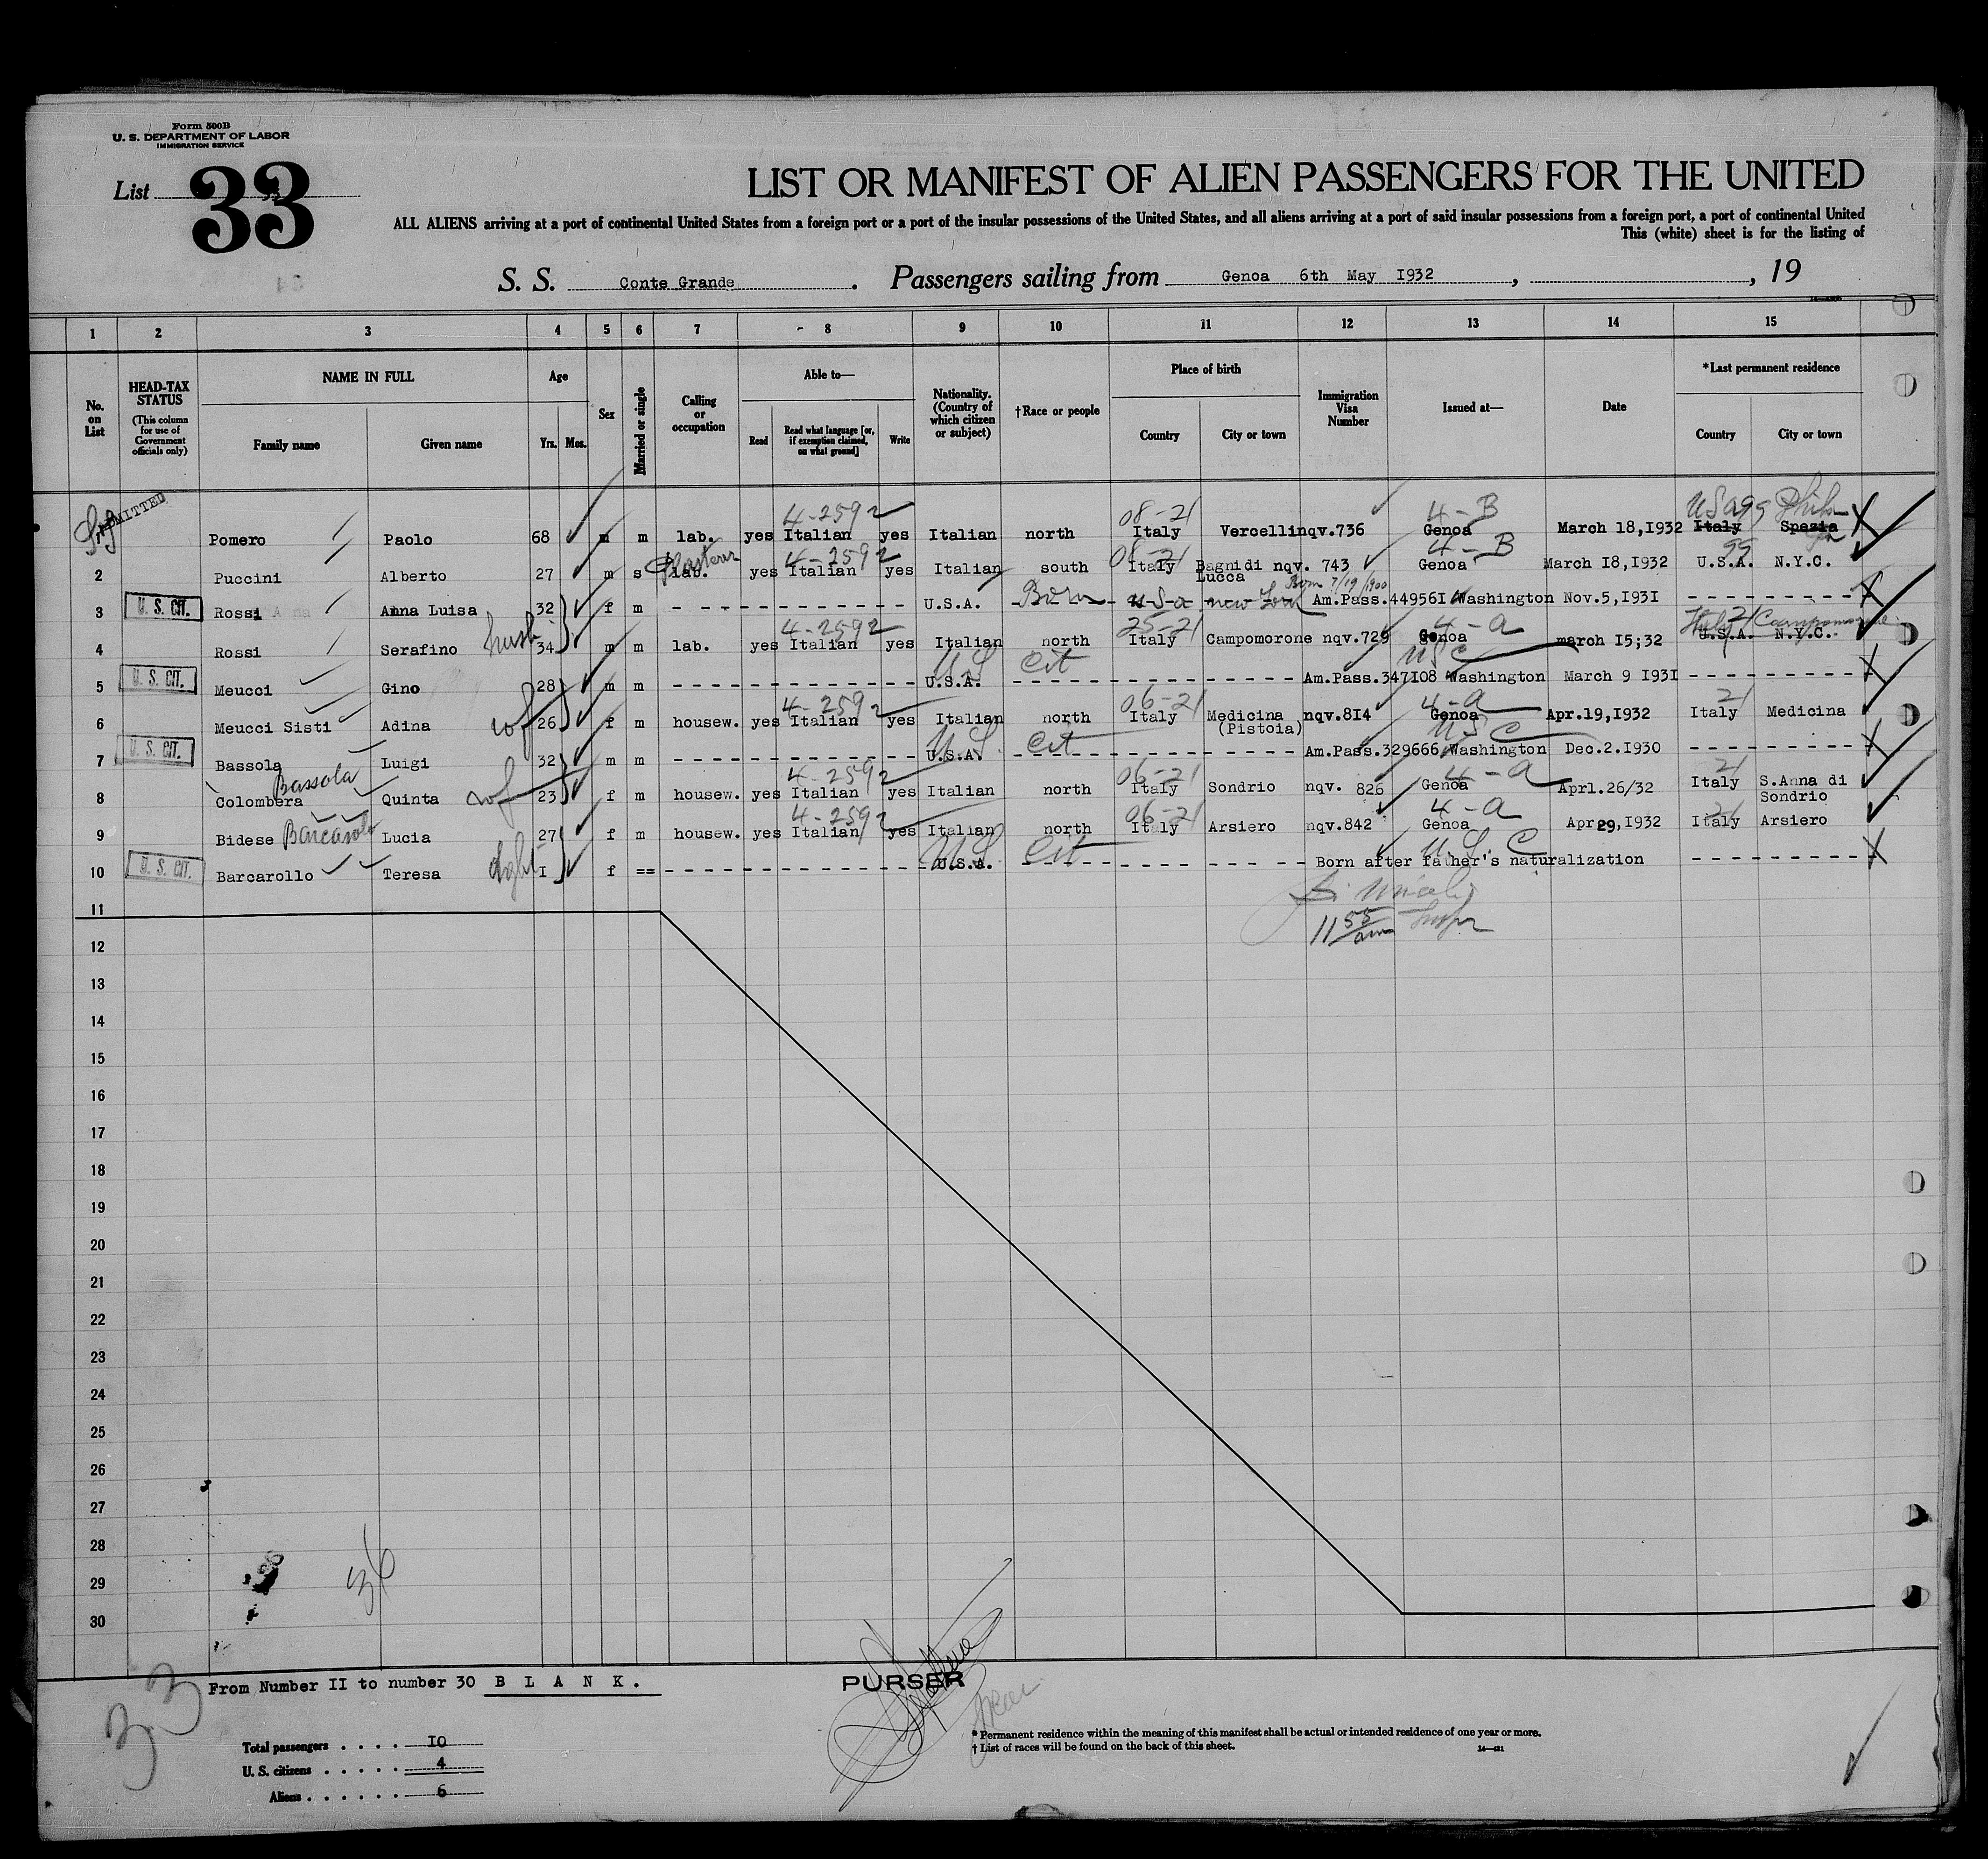 Form 500B
U. S. DEPARTMENT OF LABOR
IMMIGRATION SERVICE
List 33
LIST OR MANIFEST OF ALIEN PASSENGERS FOR THE UNITED
ALL ALIENS arriving at a port of continental United States from a foreign port or a port of the insular possessions of the United States, and all aliens arriving at a port of said insular possessions from a foreign port, a port of continental United
This (white) sheet is for the listing of
S. S. Conte Grande. Passengers sailing from Genoa 6th May I932, , 19
1 2 3 4 5 6 7 8 9 10 11 12 13 14 15
No. on List
HEAD-TAX STATUS (This column for use of Government officials only)
NAME IN FULL Family name Given name
Age Yrs. Mos.
Sex
Married or single
Calling or occupation
Able to— Read Read what language [or, if exemption claimed, on what ground] Write
Nationality. (Country of which citizen or subject)
†Race or people
Place of birth Country City or town
Immigration Visa Number
Issued at—
Date
*Last permanent residence Country City or town
ADMITTED
4-2592 08-21 4-B USA 95 Phila
Pomero Paolo 68 m m lab. yes Italian yes Italian north Italy Vercelli nqv.736 Genoa March I8,I932 Italy Spezia Pa
Plasterer 4-2592 08-21 4-B 55
2 Puccini Alberto 27 m s lab. yes Italian yes Italian south Italy Bagnidi nqv. 743 Genoa March I8,I932 U.S.A. N.Y.C.
Lucca Born 7/19/1900
3 U. S. CIT. Rossi Anna Luisa 32 f m U.S.A. Born U-S-a new York Am.Pass.44956I Washington Nov.5,I93I
husb 4-2592 25-21 4-a Italy 21 Campomorone
4 Rossi Serafino 34 m m lab. yes Italian yes Italian north Italy Campomorone nqv.729 Genoa march I5;32 U.S.A. N.Y.C.
US Cit USC
5 U. S. CIT. Meucci Gino 28 m m U.S.A. Am.Pass.347I08 Washington March 9 I93I
wf 4-2592 06-21 4-a 21
6 Meucci Sisti Adina 26 f m housew. yes Italian yes Italian north Italy Medicina nqv.8I4 Genoa Apr.I9,I932 Italy Medicina
(Pistoia)
US Cit USC
7 U. S. CIT. Bassola Luigi 32 m m U.S.A. Am.Pass.329666 Washington Dec.2.I930
Bassola wf 4-2592 06-21 4-a 21
8 Colombera Quinta 23 f m housew. yes Italian yes Italian north Italy Sondrio nqv. 826 Genoa Aprl.26/32 Italy S.Anna di
Sondrio
4-2592 06-21 4-a 21
9 Bidese Lucia 27 f m housew. yes Italian yes Italian north Italy Arsiero nqv.842 Genoa Apr29,I932 Italy Arsiero
US Cit U.S.C
10 U. S. CIT. Barcarollo Teresa I f == U.S.A. Born after father's naturalization
11
11 55 am
12
13
14
15
16
17
18
19
20
21
22
23
24
25
26
27
28
29
30
36
33
From Number II to number 30 B L A N K .
PURSER
Total passengers . . . . I0
U. S. citizens . . . . . 4
Aliens . . . . . . 6
* Permanent residence within the meaning of this manifest shall be actual or intended residence of one year or more.
† List of races will be found on the back of this sheet.